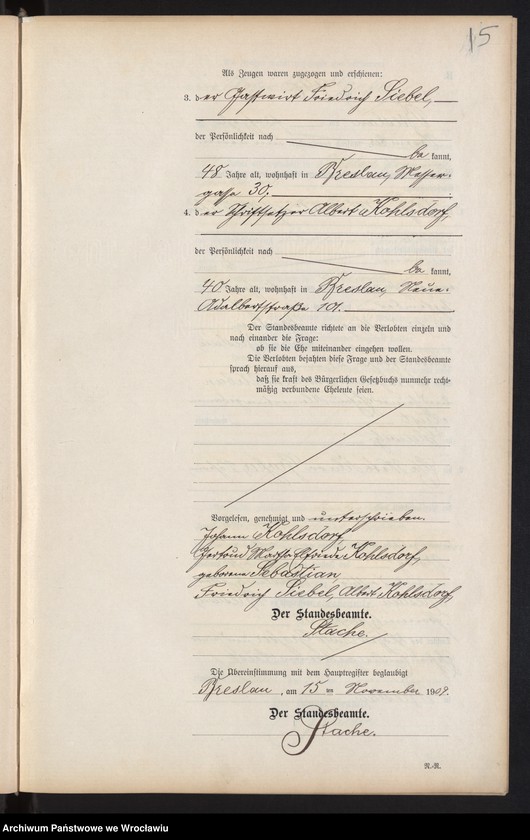 15
Als Zeugen waren zugezogen und erschienen:
3. der Gastwirt Friedrich Siebel,
der Persönlichkeit nach
be kannt,
48 Jahre alt, wohnhaft in Breslau, Messer-
gasse 30.
4. der Schriftsetzer Albert Kohlsdorf,
der Persönlichkeit nach
be kannt,
40 Jahre alt, wohnhaft in Breslau, Neue-
Adalbertstraße 101.
Der Standesbeamte richtete an die Verlobten einzeln und
nach einander die Frage:
ob sie die Ehe miteinander eingehen wollen.
Die Verlobten bejahten diese Frage und der Standesbeamte
sprach hierauf aus,
daß sie kraft des Bürgerlichen Gesetzbuchs nunmehr recht-
mäßig verbundene Eheleute seien.
Vorgelesen, genehmigt und unterschrieben.
Johann Kohlsdorf,
Gertrud Martha Elfriede Kohlsdorf,
geborene Sebastian,
Friedrich Siebel, Albert Kohlsdorf,
Der Standesbeamte.
Stache.
Die Übereinstimmung mit dem Hauptregister beglaubigt
Breslau, am 15 ten November 1909.
Der Standesbeamte.
Stache.
N.-R.
Archiwum Państwowe we Wrocławiu